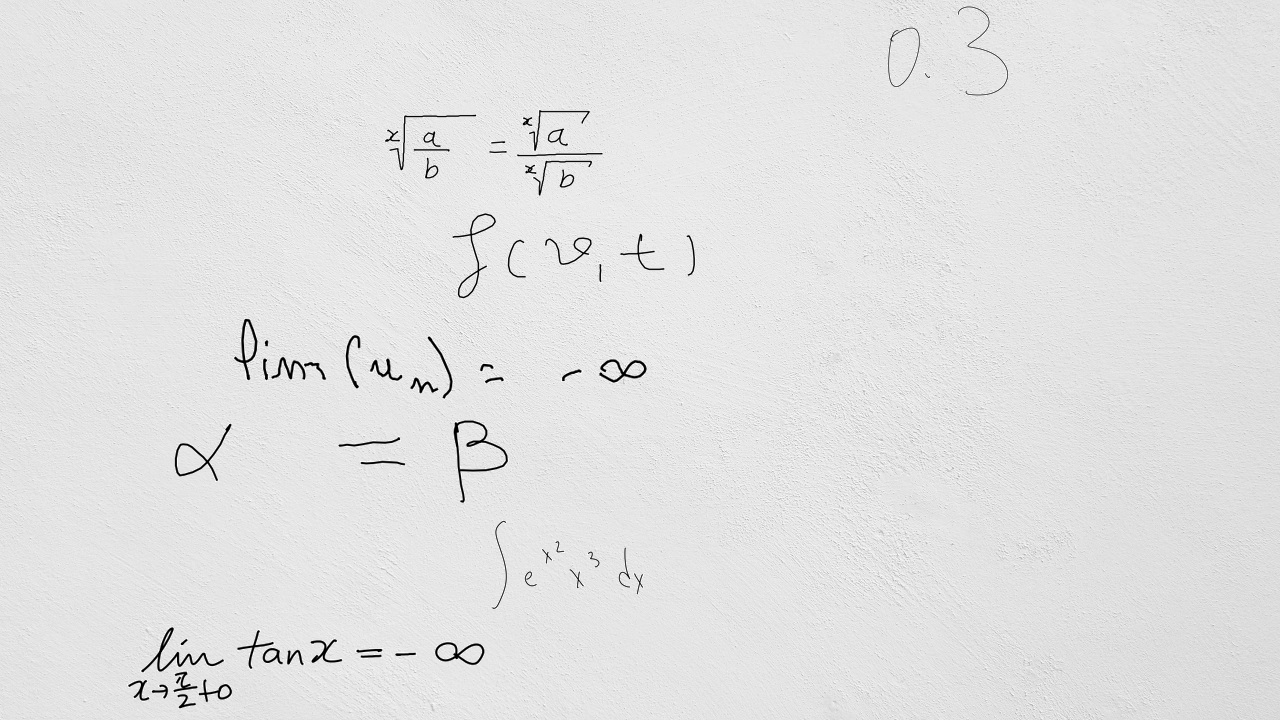 0.3
\sqrt[x]{\frac{a}{b}} = \frac{\sqrt[x]{a}}{\sqrt[x]{b}}
f(v, t)
lim (u_n) = -∞
α = β
∫ e^{x^2} x^3 dx
\lim_{x→\frac{π}{2}+0} tan x = -∞